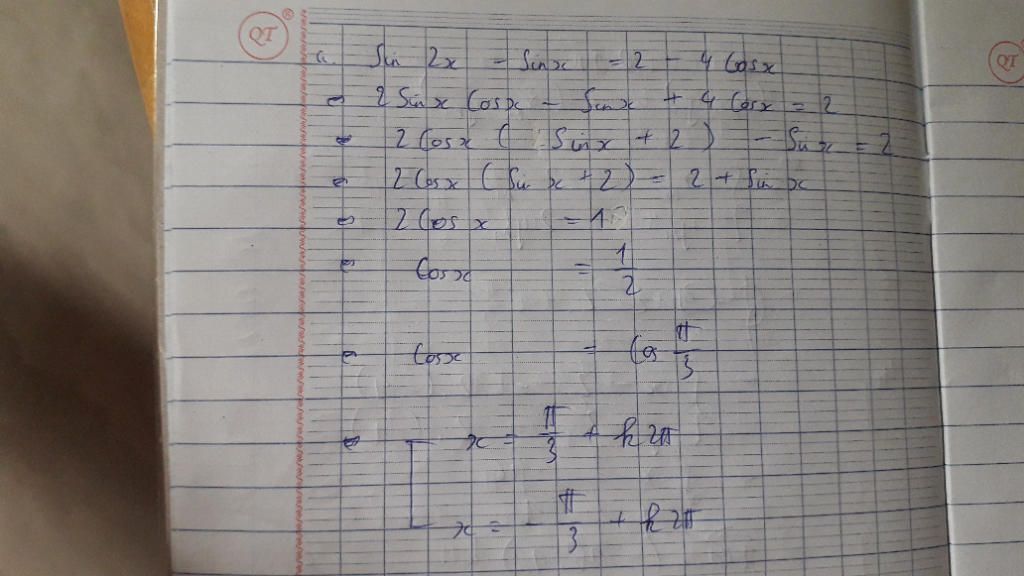 QT ®
a. Sin 2x - Sinx = 2 - 4 Cosx
⇔ 2 Sinx Cosx - Sinx + 4 Cosx = 2
⇔ 2 Cosx ( Sinx + 2 ) - Sinx = 2
⇔ 2 Cosx ( Sin x + 2 ) = 2 + Sin x
⇔ 2 Cos x = 1
⇔ Cosx = 1/2
⇔ Cosx = Cos π/3
⇔ [ x = π/3 + k2π
x = - π/3 + k2π
QT